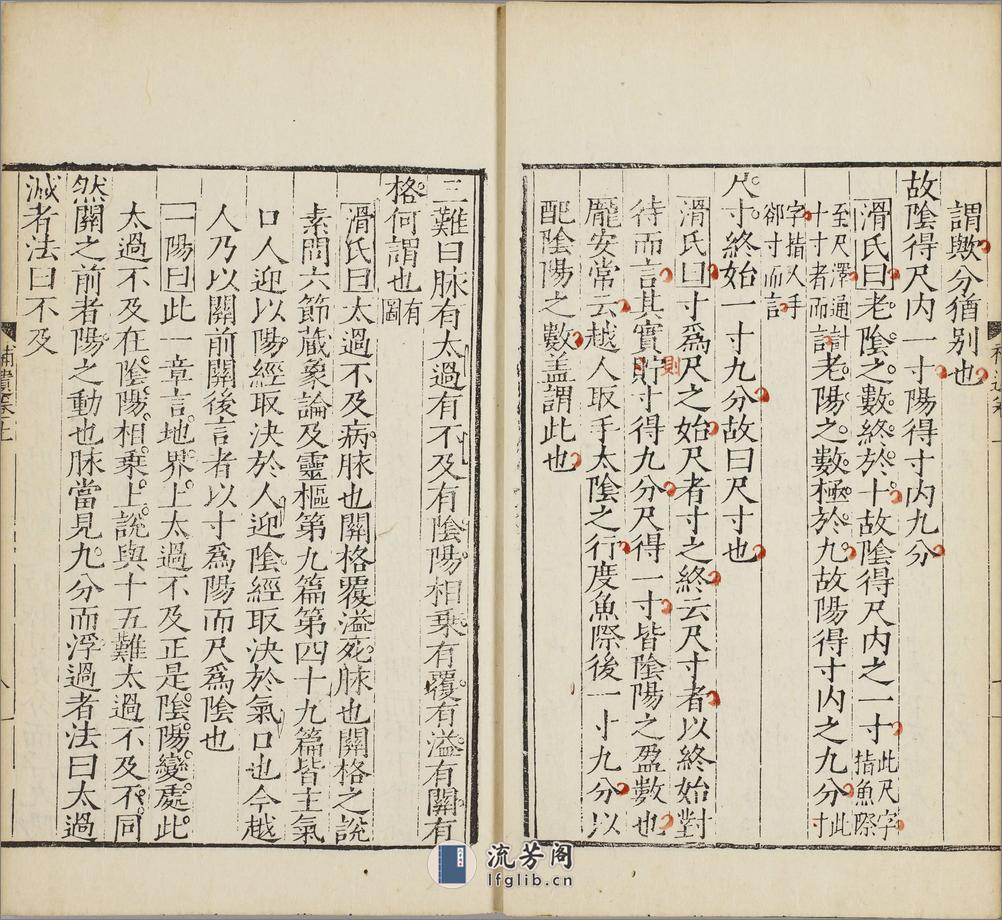 謂歟分猶別也
故陰得尺內一寸陽得寸內九分
滑氏曰老陰之數終於十故陰得尺內之一寸此尺字指魚際
至尺澤通計十寸者而言老陽之數極於九故陽得寸內之九分此寸
字指人手
郤寸而言
尺寸終始一寸九分故曰尺寸也
滑氏曰寸爲尺之始尺者寸之終云尺寸者以終始對
待而言其實貯寸得九分尺得一寸皆陰陽之盈數也
則
龐安常云越人取手太陰之行度魚際後一寸九分以
配陰陽之數蓋謂此也
三難曰脉有太過有不及有陰陽相乗有覆有溢有關有
格何謂也有圖
滑氏曰太過不及病脉也關格覆溢死脉也關格之說
素問六節蔵象論及靈樞第九篇第四十九篇皆主氣
口人迎以陽經取決於人迎陰經取決於氣口也今越
人乃以關前關後言者以寸爲陽而尺爲陰也
一陽曰此一章言地界上太過不及正是陰陽變處此
太過不及在陰陽相乗上說與十五難太過不及不同
然關之前者陽之動也脉當見九分而浮過者法曰太過
減者法曰不及
流芳阁
lfglib.cn